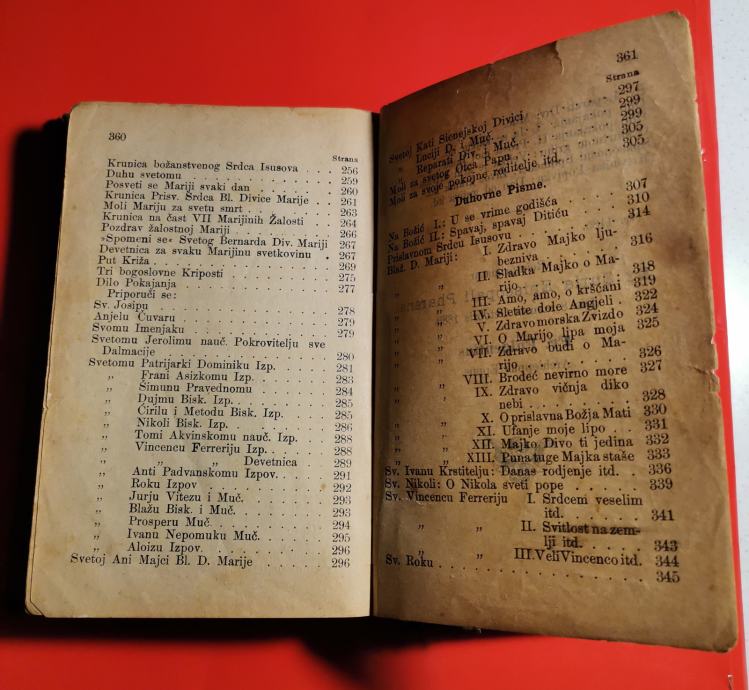 360
Strana
Krunica božanstvenog Srdca Isusova . . . 256
Duhu svetomu . . . . . . . . . . . 259
Posveti se Mariji svaki dan . . . . . . . 260
Krunica Prisv. Srdca Bl. Divice Marije . . . 261
Moli Mariju za svetu smrt . . . . . . . 263
Krunica na čast VII Marijinih Žalosti . . . 264
Pozdrav žalostnoj Mariji . . . . . . . . 266
»Spomeni se« Svetog Bernarda Div. Mariji 267
Devetnica za svaku Marijinu svetkovinu . 267
Put Križa . . . . . . . . . . . . 269
Tri bogoslovne Kriposti . . . . . . . . 275
Dilo Pokajanja . . . . . . . . . . . 277
Priporuči se:
Sv. Josipu . . . . . . . . . . . . 278
Anjelu Čuvaru . . . . . . . . . . . 279
Svomu Imenjaku . . . . . . . . . . 279
Svetomu Jerolimu nauč. Pokrovitelju sve
Dalmacije . . . . . . . . . . . 280
Svetomu Patrijarki Dominiku Izp. . . . . 281
„ Frani Asizkomu Izp. . . . . . 283
„ Šimunu Pravednomu . . . . . 284
„ Dujmu Bisk. Izp. . . . . . . 285
„ Ćirilu i Metodu Bisk. Izp. . . . 285
„ Nikoli Bisk. Izp. . . . . . . 286
„ Tomi Akvinskomu nauč. Izp. . . 288
„ Vincencu Ferreriju Izp. . . . . 288
„ „ „ Devetnica . . 289
„ Anti Padvanskomu Izpov. . . . . 291
„ Roku Izpov. . . . . . . . . 292
„ Jurju Vitezu i Muč. . . . . . 293
„ Blažu Bisk. i Muč. . . . . . . 293
„ Prosperu Muč. . . . . . . . 294
„ Ivanu Nepomuku Muč. . . . . . 295
„ Aloizu Izpov. . . . . . . . . 296
Svetoj Ani Majci Bl. D. Marije . . . . . 296
361
Strana
Svetoj Kati Sienejskoj Divici . . . 297
„ Luciji D. i Muč. . . . . . 299
„ Reparati Div. i Muč. . . . . 299
Moli za svetog Otca Papu . . . . . 305
Moli za svoje pokojne roditelje itd. . . 305
Duhovne Pisme.
Na Božić I.: U se vrime godišća . . . 307
Na Božić II.: Spavaj, spavaj Ditiću . . 310
Prislavnom Srdcu Isusovu . . . . . 314
Blaž. D. Mariji: I. Zdravo Majko lju-
bezniva . . . 316
„ „ II. Sladka Majko o Ma-
rijo . . . . 318
„ „ III. Amo, amo, o kršćani 319
„ „ IV. Sletite dole Angjeli . 322
„ „ V. Zdravo morska Zvizdo 324
„ „ VI. O Marijo lipa moja 325
„ „ VII. Zdravo budi o Ma-
rijo . . . . 326
„ „ VIII. Brodeć nevirno more 327
„ „ IX. Zdravo vičnja diko
nebi . . . . 328
„ „ X. O prislavna Božja Mati 330
„ „ XI. Ufanje moje lipo . . 331
„ „ XII. Majko Divo ti jedina 332
„ „ XIII. Puna tuge Majka staše 333
Sv. Ivanu Krstitelju: Danas rodjenje itd. . 336
Sv. Nikoli: O Nikola sveti pope . . . 339
Sv. Vincencu Ferreriju I. Srdcem veselim
itd. . . . . 341
„ „ II. Svitlost na zem-
lji itd. . . . 343
„ „ III. Veli Vincenco itd. 344
Sv. Roku . . . . . . . . . . . 345